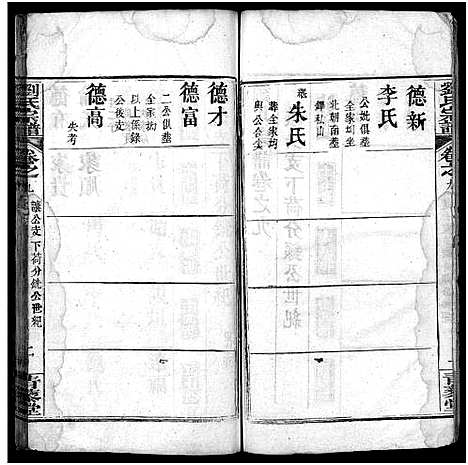 劉氏宗譜
卷之九
德新
公妣俱葬
全家坳坐
北朝南葬
李氏
鐔私山
朱氏
與公合葬
德才
德富
二公俱葬
全家坳
以上係錄
公後支
德高
失考
劉氏宗譜
卷之九
謙公支下荷分銑公世紀
二
青藜堂